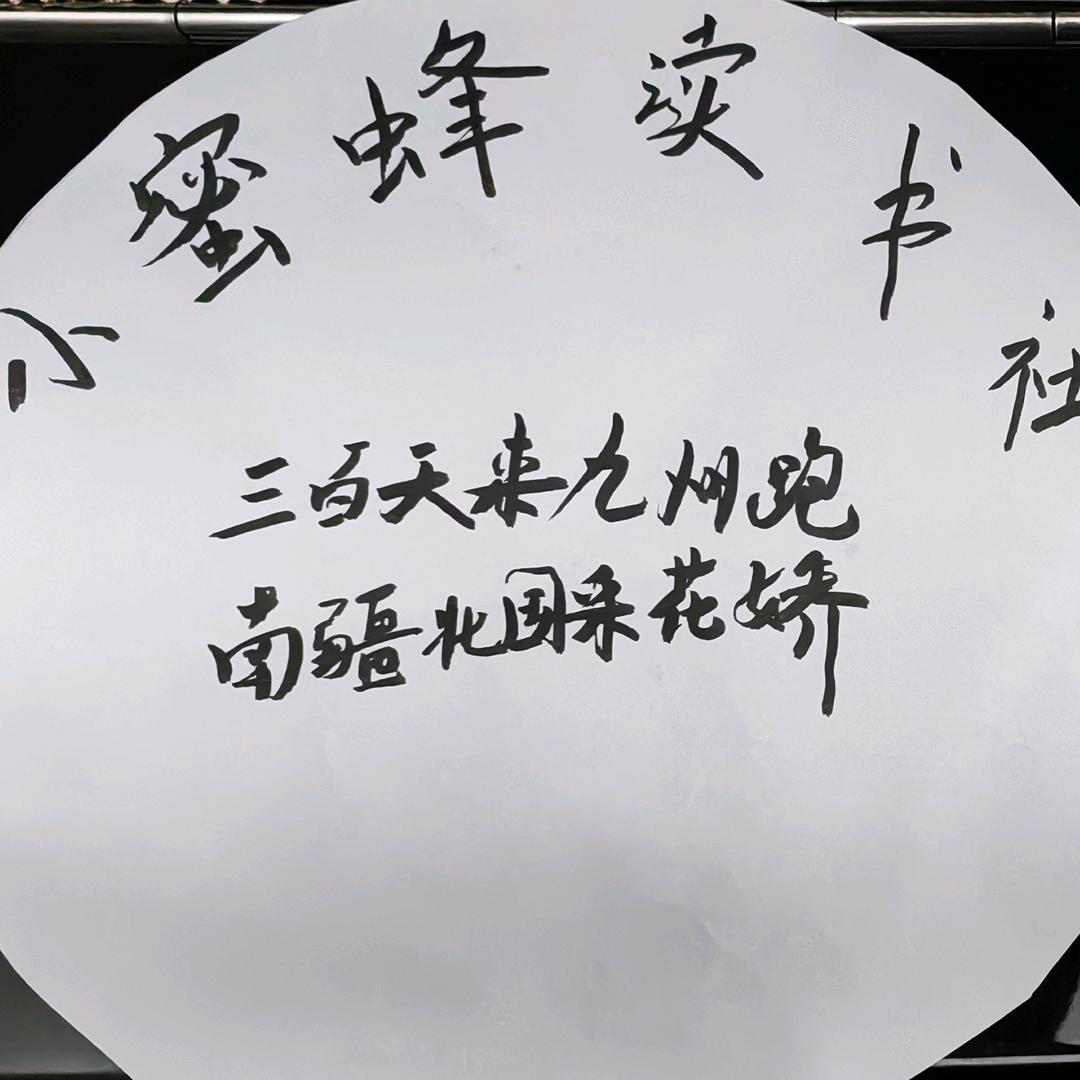 小蜜蜂读书社
三百天来九州跑
南疆北国采花娇